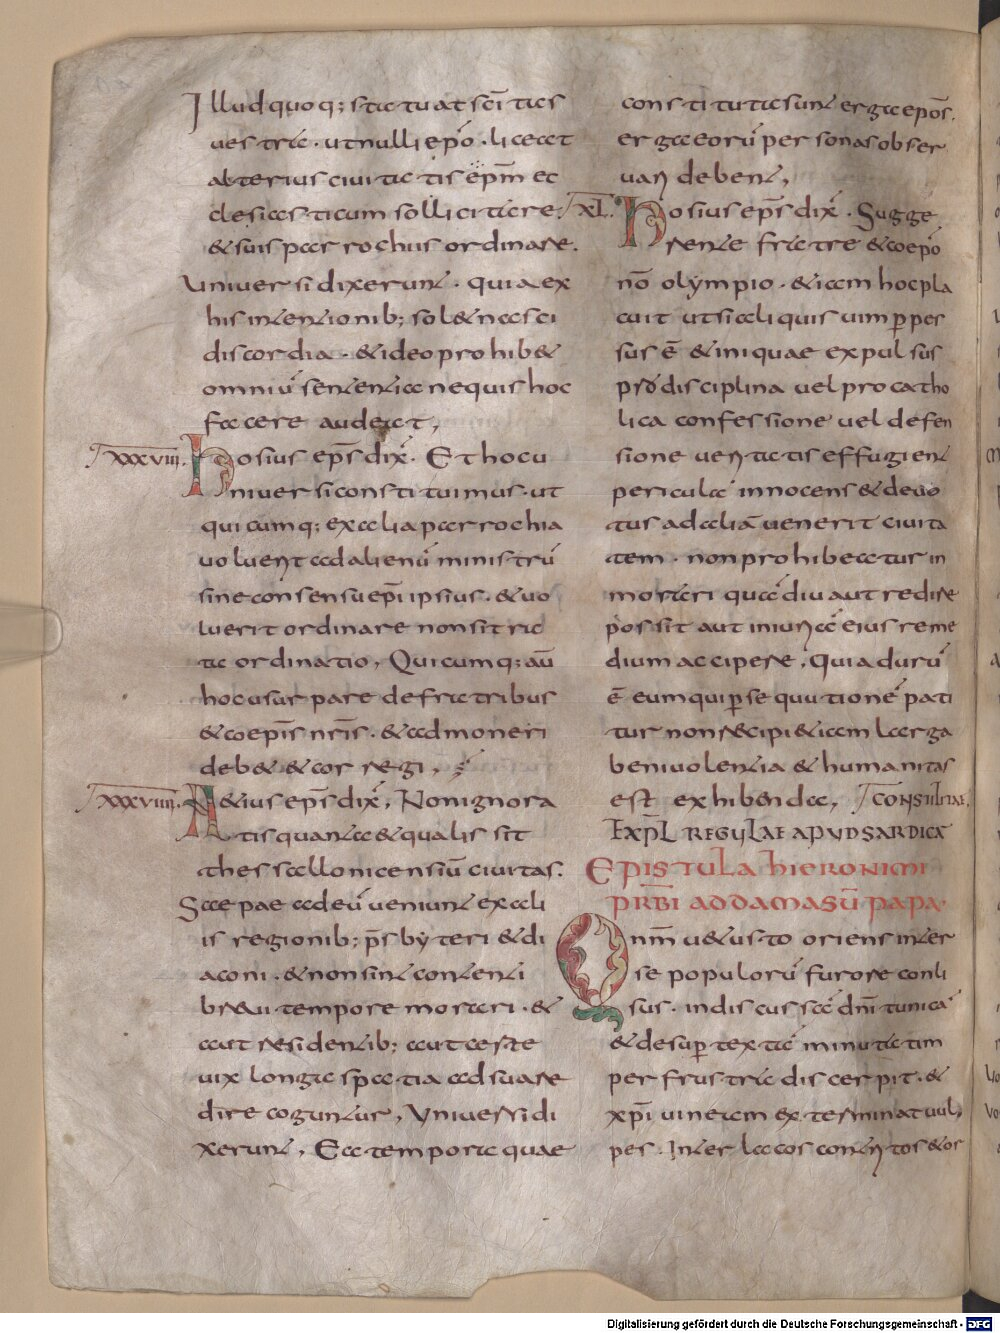 Illud quoq; statuat sc̄itas
uestra. ut nulli ep̄o. liceat
alterius ciuitatis ep̄m ec
clesiasticum sollicitare.
& suis parrochiis ordinare.
Uniuersi dixerunt. quia ex
his intentionib; sol& nasci
discordia. & ideo prohib&
omniū sententia nequis hoc
facere audeat,
XXXVIII. Hosius ep̄s dix̄. Et hoc u
niuersi constituimus. ut
quicumq; ex alia parrochia
uoluerit ad alienū ministrū
sine consensu ep̄i ipsius. & uo
luerit ordinare non sit ra
ta ordinatio, Quicumq; aū
hoc usurpare de fratribus
& coep̄is nr̄is. & admoneri
deb& & corregi,
XXXVIIII. A&ius ep̄s dix̄, Non ignora
tis quanta & qualis sit
thessallonicensiū ciuitas.
Saepae ad eū ueniunt ex ali
is regionib; p̄sbyteri & di
aconi. & non sint contenti
breui tempore morari. &
aut resident ib; aut certe
uix longa spatia ad suare
dire coguntur, Uniuersi di
xerunt, Ea tempora quae
constituta sunt erga ep̄os.
erga eorū personas obser
uari debent,
XL. Hosius ep̄s dix̄. Sugge
rente fratre & coep̄o
nō olympio. & iam hoc pla
cuit ut si aliquis uim perpes
sus ē & inique expulsus
pro disciplina uel pro catho
lica confessione uel defen
sione ueritatis effugient
pericula innocens & deuo
tus ad aliā uenerit ciuita
tem. non prohibeatur in
morari quādiu aut redire
possit aut iniuriā eius reme
dium accipere. Quia durū
ē eum qui persequutionē pati
tur non recipi & iam larga
beniuolentia & humanitas
est exhibenda, CONSTILIAE.
EXPL REGULAE APUD SARDICĀ
EPISTULA HIERONIMI
PRB̄I AD DAMASŪ PAPA.
Qnm̄ u&usto oriens inter
se populorū furore conli
sus. indiscussā dn̄i tunicā
& desuper textā minutatim
per frustra discerpit. &
xp̄i uineam exterminat uul,
pes. Inter lacos contritos & or